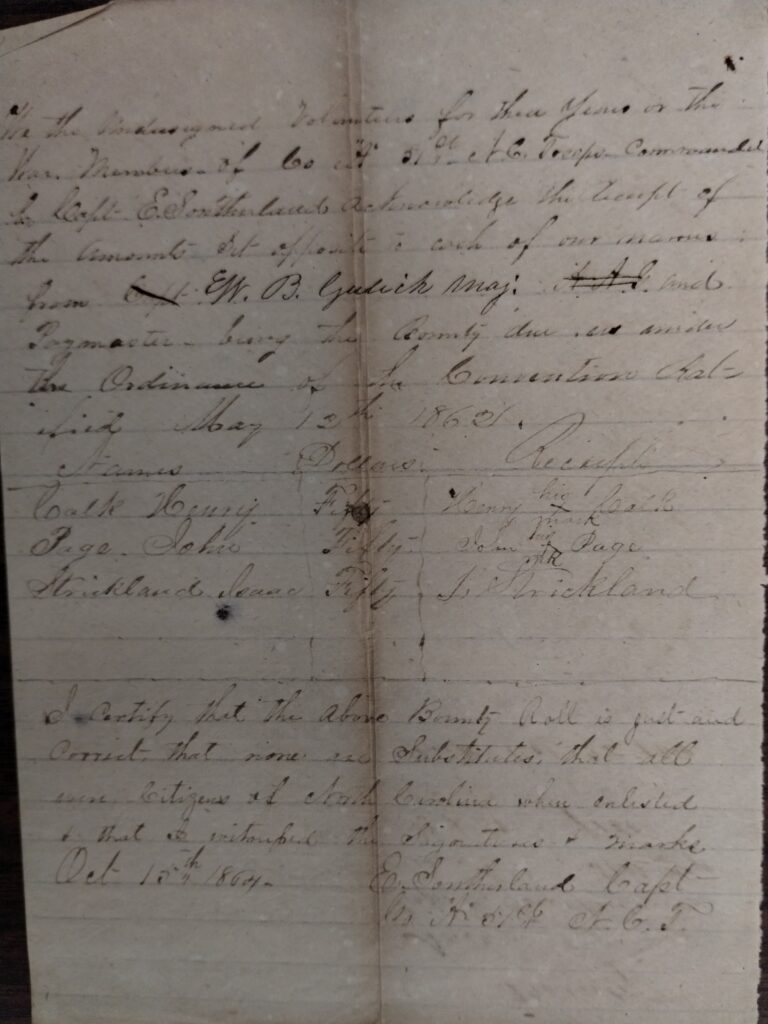 We the Undersigned Volunteers for three Years or the
War. Members of Co "A" 51st N.C. Troops Commanded
by Capt E. Southerland Acknowledge the receipt of
the amounts set opposite to each of our names
from Capt W. B. Gulick Maj. A.A.G. and
Paymaster being the Bounty due us under
the Ordinance of the Convention Rat-
ified May 12th 1862.
Names Dollars Receipt
Calk Henry Fifty Henry his X mark Calk
Page John Fifty John his X mk Page
Strickland Isaac Fifty I. Strickland
I certify that the above Bounty Roll is just and
correct, that none are Substitutes, that all
were Citizens of North Carolina when enlisted
& that I witnessed the Signatures & marks
Oct 15th 1864. E. Southerland Capt
51st N.C.T.